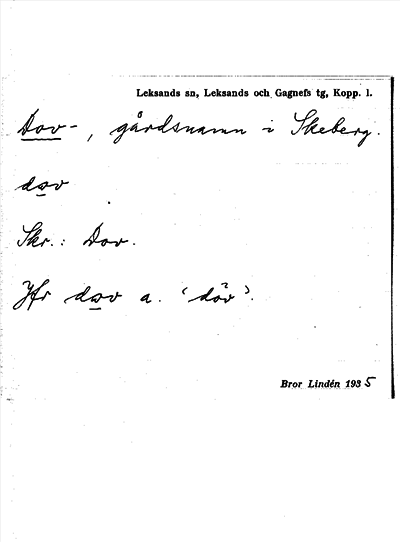 Leksands sn, Leksands och Gagnefs tg, Kopp. l.
Dov-, gårdsnamn i Skeberg.
dov
Skr.: Dov.
Jfr dov a. ‘döv’.
Bror Lindén 1935